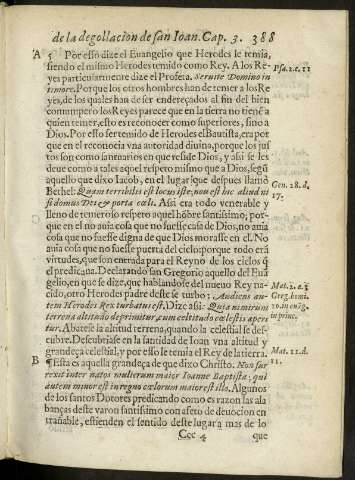 de la degollacion de san Ioan. Cap. 3. 388
A 5 Por esso dize el Euangelio que Herodes le temia,
siendo el mismo Herodes temido como Rey. A los Re- Psa. 2. c. 11
yes particularmente dize el Profeta. Seruite Domino in
timore. Porque los otros hombres han de temer a los Re
yes, de los quales han de ser endereçados al fin del bien
comun: pero los Reyes parece que en la tierra no tienē a
quien temer, esto es reconocer como superiores, sino a
Dios. Por esso ser temido de Herodes el Bautista, era por
que en el reconocia vna autoridad diuina, porque los jus
tos son como santuarios en que reside Dios, y assi se les
deue como a tales aquel respeto mismo que a Dios, segū
aquello que dixo Iacob, en el lugar que despues llamó Gen. 28. d.
Bethel: Quàm terribilis est locus iste, non est hic aliud ni 17.
si domus Dei & porta cæli. Assi era todo venerable y
lleno de temeroso respeto aquel hōbre santissimo, por-
que en el no auia cosa que no fuesse casa de Dios, no auia
cosa que no fuesse digna de que Dios morasse en el. No
auia cosa que no fuesse puerta del cielo: porque todo erā
virtudes, que son entrada para el Reyno de los cielos q̄
el predicaua. Declarando san Gregorio aquello del Euā
gelio, en que se dize, que hablandose del nueuo Rey na- Mat. 2. a. 3
cido, otro Herodes padre deste se turbo; Audiens au- Greg. homi.
tem Herodes Rex turbatus est. Dize assi: Quia nimirum 10. in euāg.
terrena altitudo deprimitur, cum celsitudo cælestis aperi in princ.
tur. Abatese la altitud terrena, quando la celestial se des-
cubre. Descubriase en la santidad de Ioan vna altitud y
grandeça celestial, y por esso le temia el Rey de la tierra. Mat. 11. d.
B ¶ Esta es aquella grandeça de que dixo Christo. Non sur 11.
rexit inter natos mulierum maior Ioanne Baptista; qui
autem minor est in regno cælorum maior est illo. Algunos
de los santos Dotores predicando como es razon las ala
banças deste varon santissimo con afeto de deuocion en
trañable, estienden el sentido deste lugar a mas de lo
Ccc 4 que